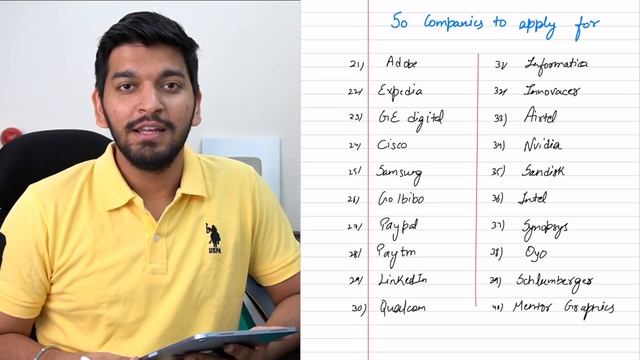 50 Companies to apply for
21) Adobe
22) Expedia
23) GE digital
24) Cisco
25) Samsung
26) GoIbibo
27) Paypal
28) Paytm
29) LinkedIn
30) Qualcom
31) Informatica
32) Innovacer
33) Airtel
34) Nvidia
35) Sandisk
36) Intel
37) Synopsys
38) Oyo
39) Schlumberger
40) Mentor Graphics
USPA